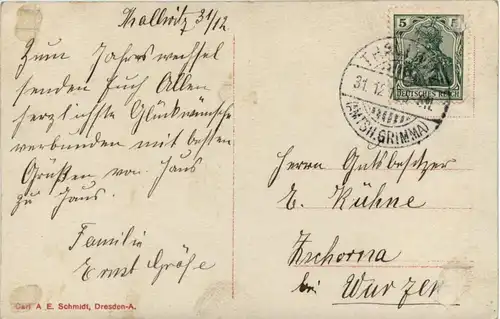 31/12
Zum Jahreswechsel
senden Euch Allen
herzlichste Glückwünsche
verbunden mit besten
Grüßen von Haus
zu Haus.
Familie
Ernst Gröfe
Carl A E. Schmidt, Dresden-A.
5
DEUTSCHES REICH
31.12
(AMTSH.GRIMMA)
Herrn Gutsbesitzer
E. Kühne
Zschorna
bei Wurzen